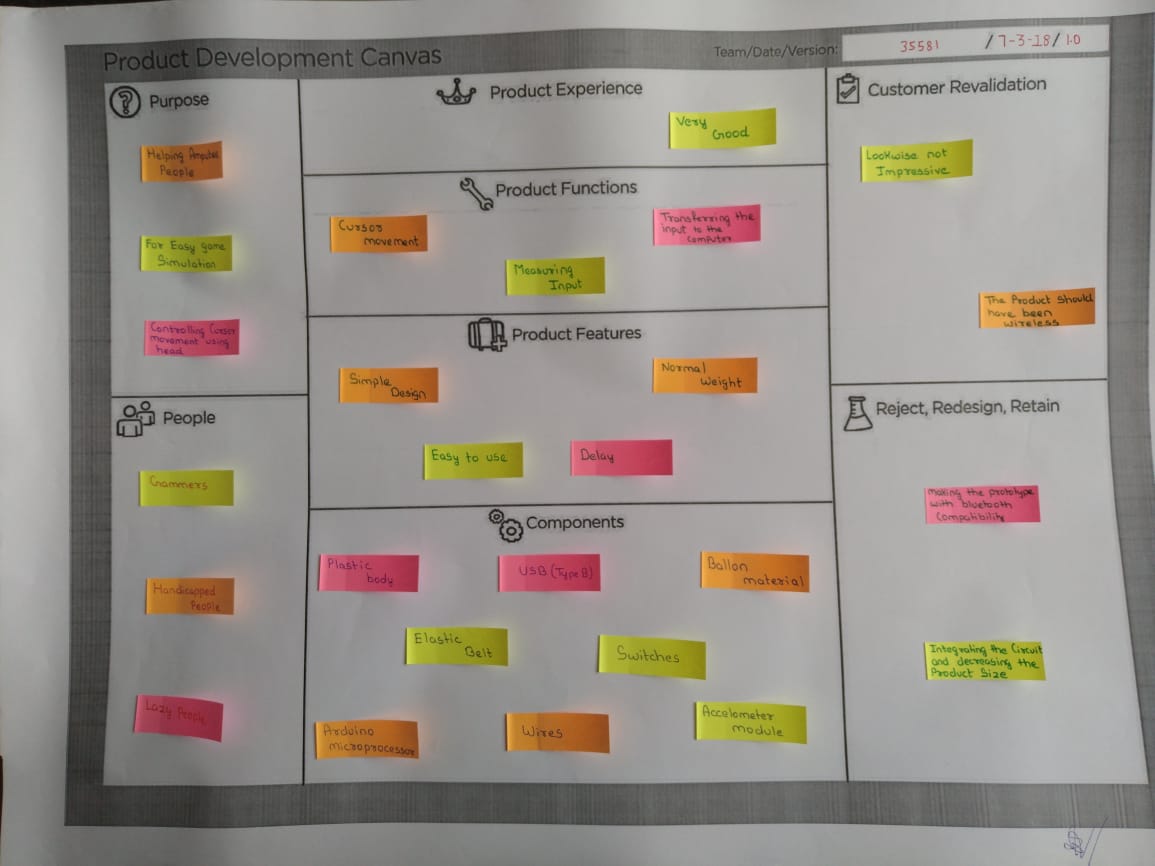 Product Development Canvas
Team/Date/Version:
35581 /7-3-18/1.0
Purpose
Helping Amputee
People
For Easy game
Simulation
Controlling Cursor
movement using
head
People
Gammers
Handicapped
People
Lazy People
Product Experience
Very
Good
Product Functions
Cursor
movement
Measuring
Input
Transferring the
input to the
computer
Product Features
Simple
Design
Normal
Weight
Easy to use
Delay
Components
Plastic
body
USB (Type B)
Ballon
material
Elastic
Belt
Switches
Arduino
microprocessor
Wires
Accelometer
module
Customer Revalidation
Lookwise not
Impressive
The Product should
have been
wireless
Reject, Redesign, Retain
making the prototype
with bluetooth
Compatibility
Integrating the Circuit
and decreasing the
Product Size